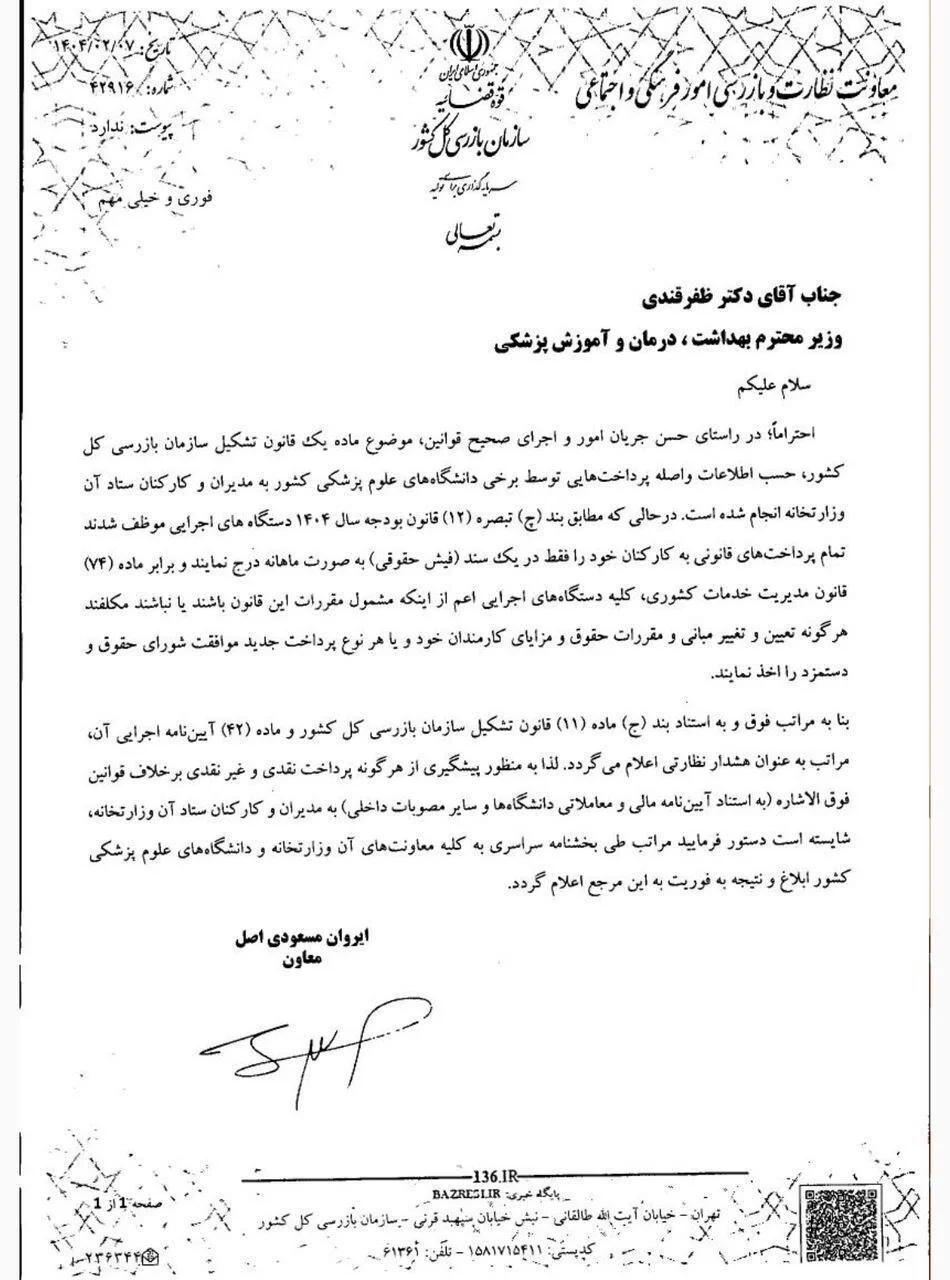 معاونت نظارت و بازرسی امور فرهنگی و اجتماعی
جمهوری اسلامی ایران
قوه قضائیه
سازمان بازرسی کل کشور
سرمایه‌گذاری برای تولید
بسمه تعالی
تاریخ: ۱۴۰۴/۰۲/۰۷
شماره: ۴۲۹۱۶
پیوست: ندارد
فوری و خیلی مهم
جناب آقای دکتر ظفرقندی
وزیر محترم بهداشت، درمان و آموزش پزشکی
سلام علیکم
احتراماً؛ در راستای حسن جریان امور و اجرای صحیح قوانین، موضوع ماده یک قانون تشکیل سازمان بازرسی کل
کشور، حسب اطلاعات واصله پرداخت‌هایی توسط برخی دانشگاه‌های علوم پزشکی کشور به مدیران و کارکنان ستاد آن
وزارتخانه انجام شده است. درحالی که مطابق بند (چ) تبصره (۱۲) قانون بودجه سال ۱۴۰۴ دستگاه های اجرایی موظف شدند
تمام پرداخت‌های قانونی به کارکنان خود را فقط در یک سند (فیش حقوقی) به صورت ماهانه درج نمایند و برابر ماده (۷۴)
قانون مدیریت خدمات کشوری، کلیه دستگاه‌های اجرایی اعم از اینکه مشمول مقررات این قانون باشند یا نباشند مکلفند
هرگونه تعیین و تغییر مبانی و مقررات حقوق و مزایای کارمندان خود و یا هر نوع پرداخت جدید موافقت شورای حقوق و
دستمزد را اخذ نمایند.
بنا به مراتب فوق و به استناد بند (ج) ماده (۱۱) قانون تشکیل سازمان بازرسی کل کشور و ماده (۴۲) آیین‌نامه اجرایی آن،
مراتب به عنوان هشدار نظارتی اعلام می‌گردد. لذا به منظور پیشگیری از هرگونه پرداخت نقدی و غیر نقدی برخلاف قوانین
فوق الاشاره (به استناد آیین‌نامه مالی و معاملاتی دانشگاه‌ها و سایر مصوبات داخلی) به مدیران و کارکنان ستاد آن وزارتخانه،
شایسته است دستور فرمایید مراتب طی بخشنامه سراسری به کلیه معاونت‌های آن وزارتخانه و دانشگاه‌های علوم پزشکی
کشور ابلاغ و نتیجه به فوریت به این مرجع اعلام گردد.
ایروان مسعودی اصل
معاون
136.IR
پایگاه خبری: BAZRESI.IR
تهران - خیابان آیت الله طالقانی - نبش خیابان سپهبد قرنی - سازمان بازرسی کل کشور
کدپستی: ۱۵۸۱۷۱۵۴۱۱ - تلفن: ۶۱۳۶۱
صفحه 1 از 1
۲۳۶۳۴۴